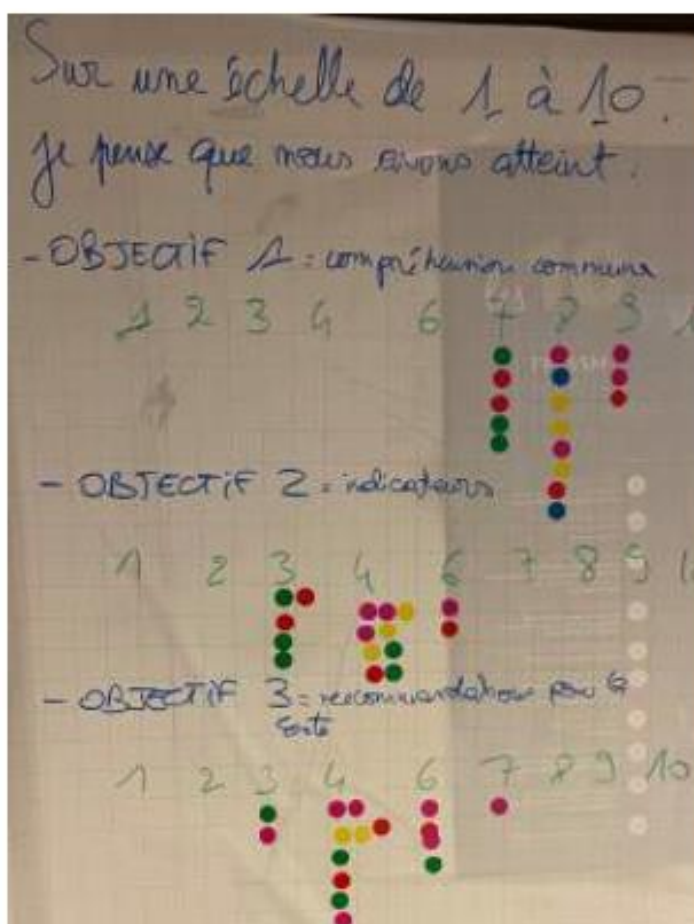 Sur une échelle de 1 à 10.
je pense que nous avons atteint.
- OBJECTIF 1 = compréhension commune
1 2 3 4 6 7 8 9 1
- OBJECTIF 2 = indicateurs
1 2 3 4 6 7 8 9
- OBJECTIF 3 = recommandations pour la
1 2 3 4 6 7 8 9 10